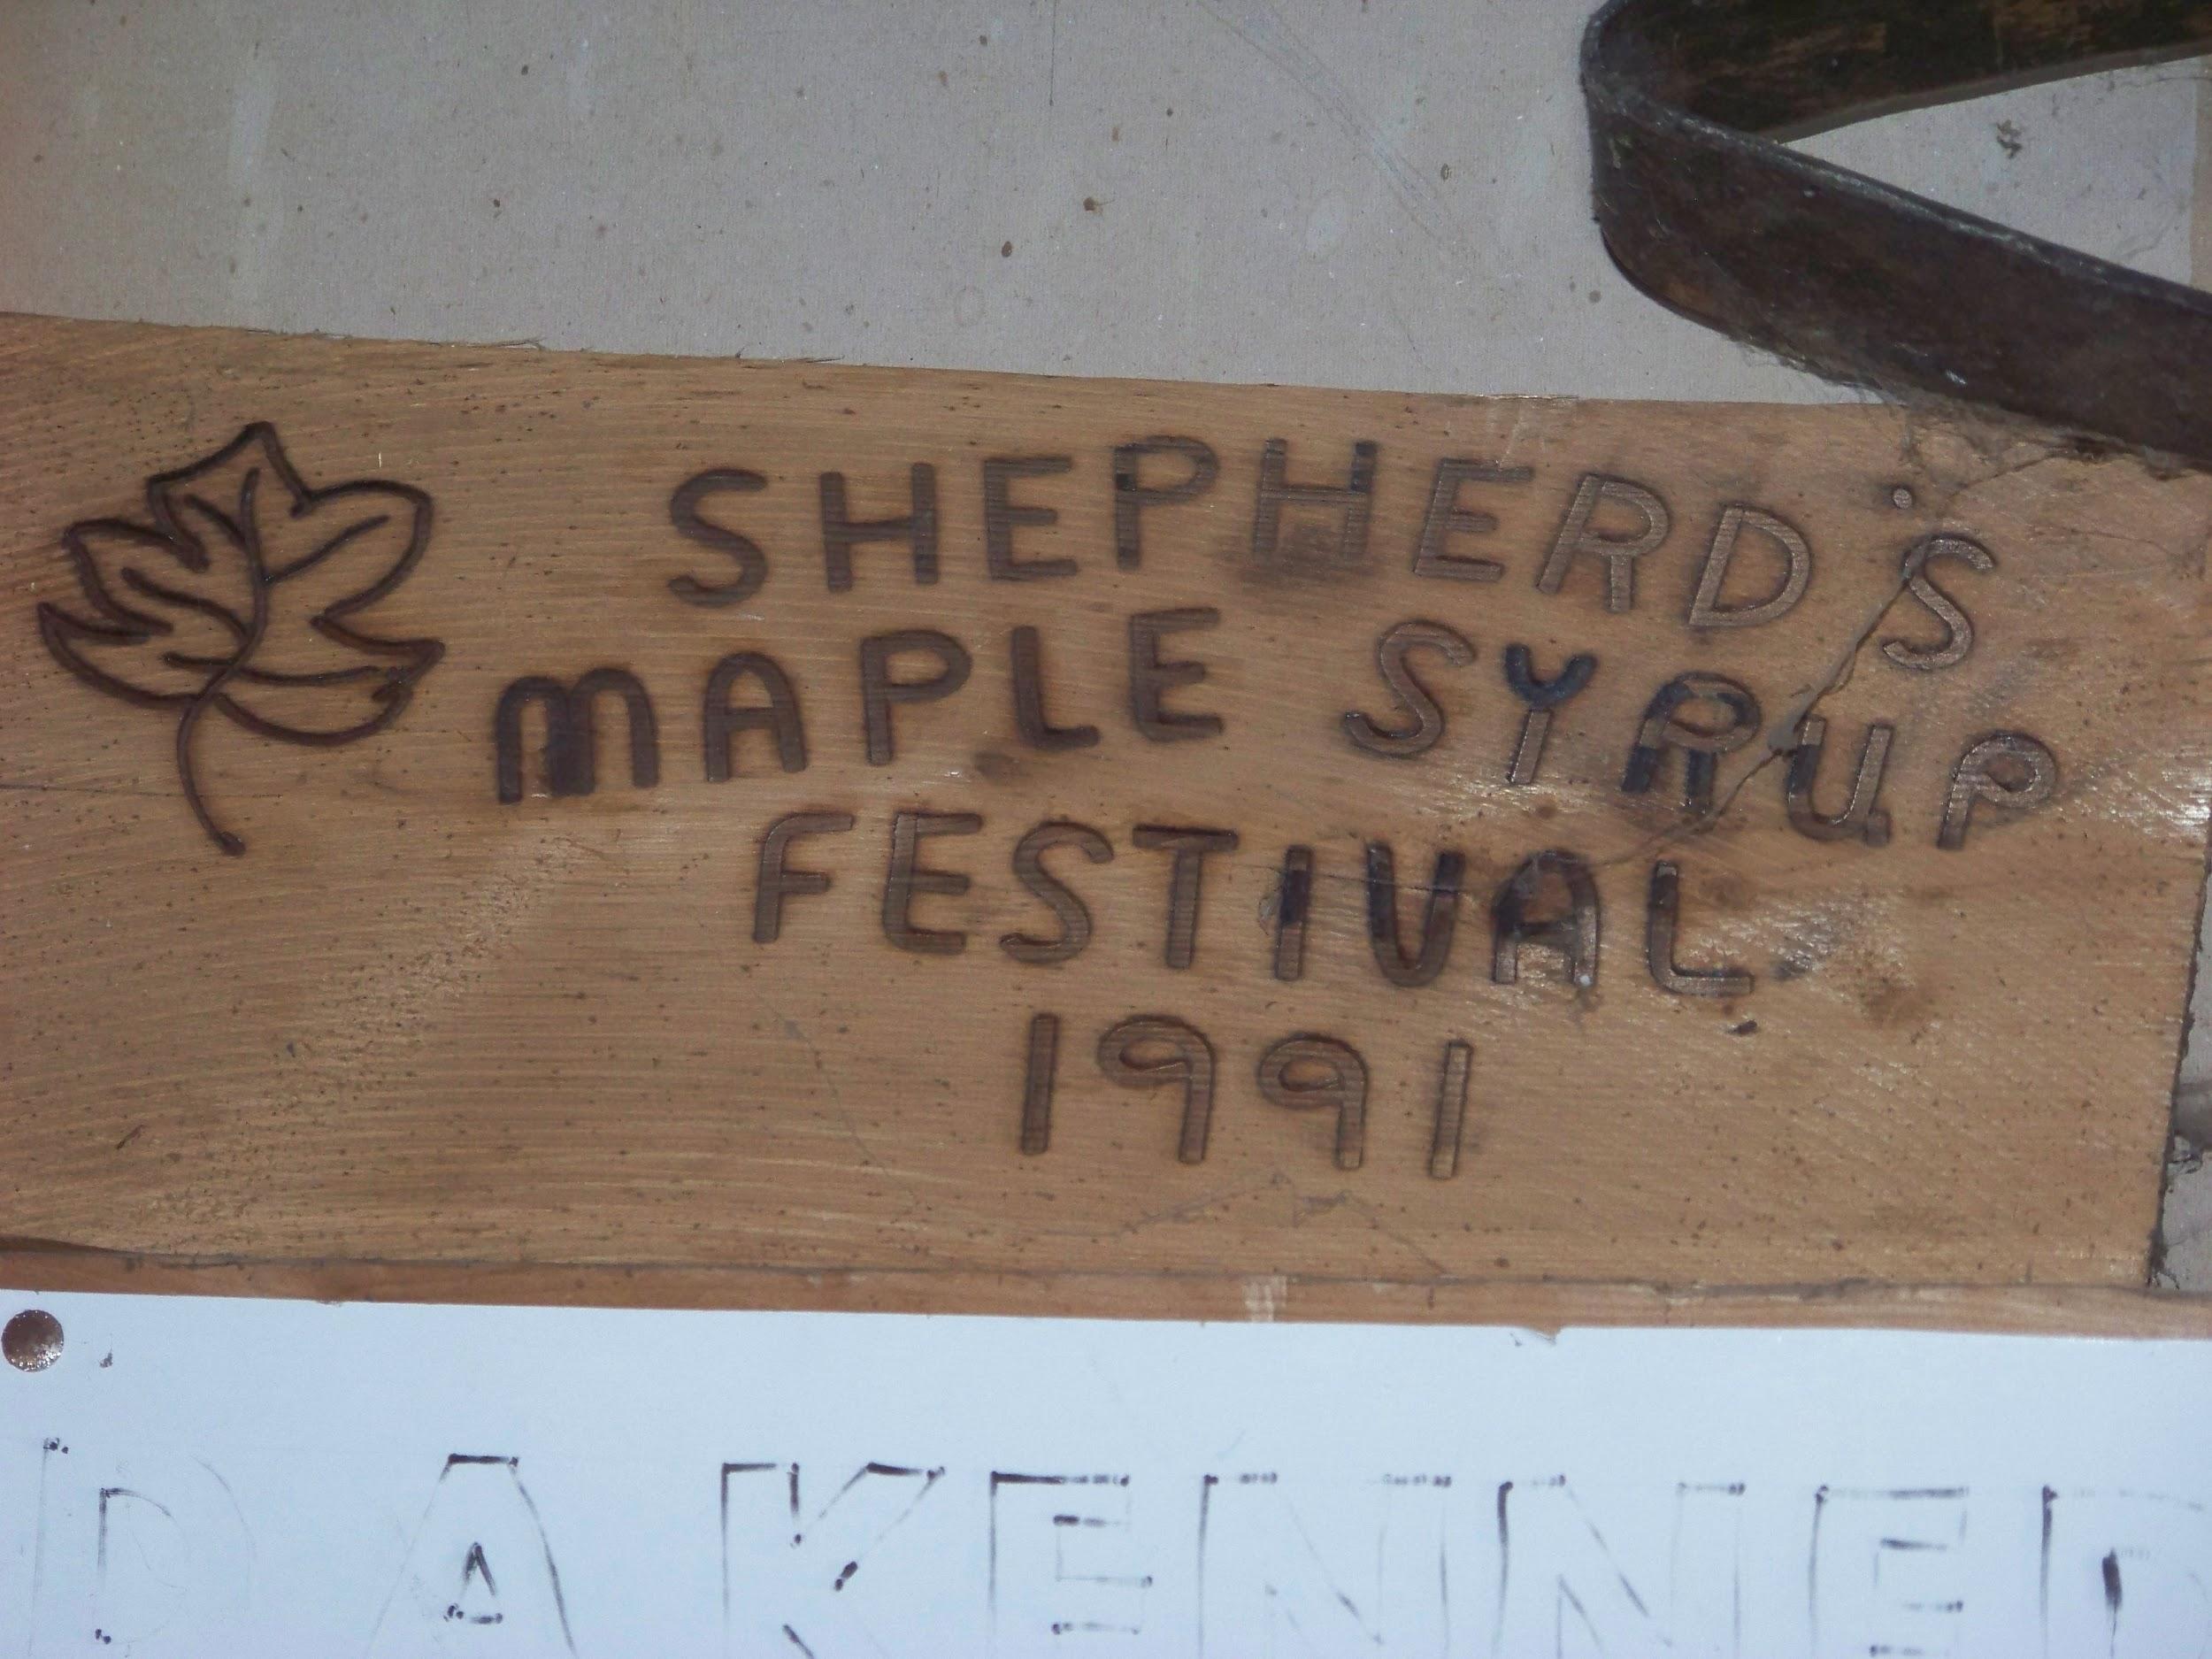 SHEPHERD'S
MAPLE SYRUP
FESTIVAL
1991
D A KENNED